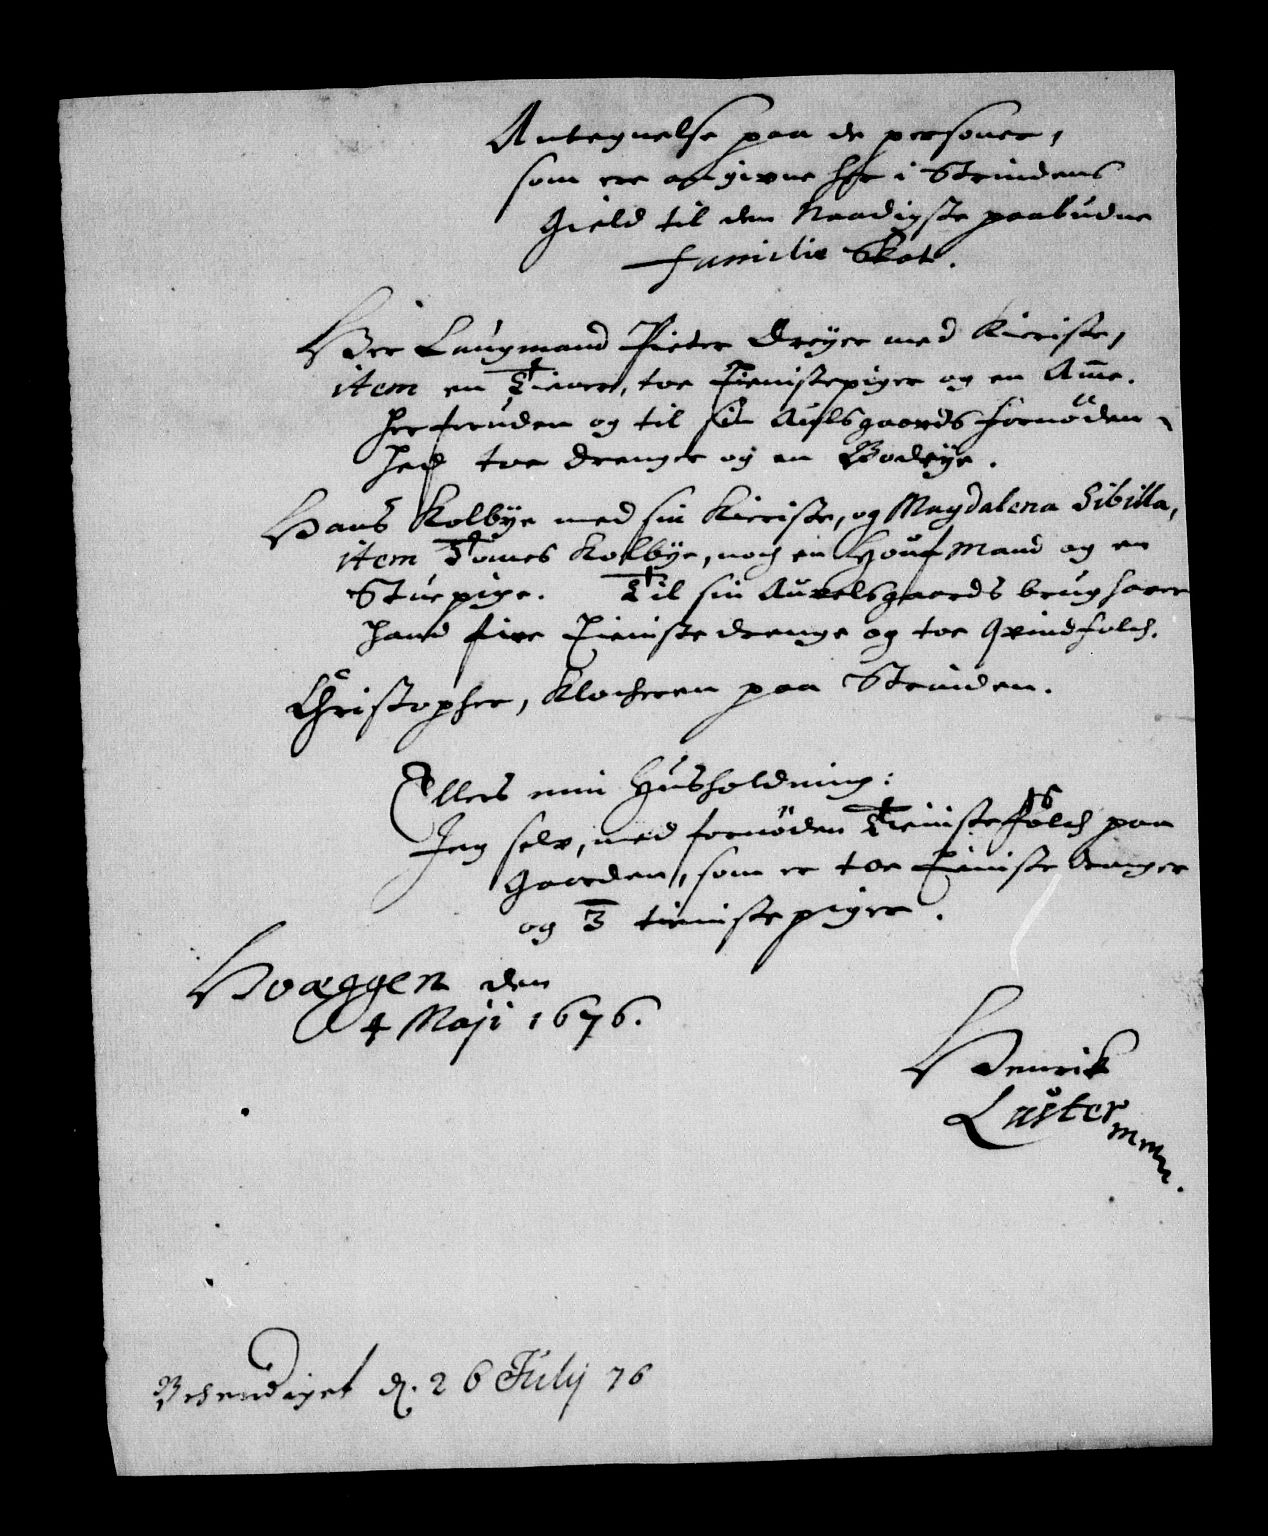 Antegnelse paa de personer,
som ere angivne her i Strindens
Gield til den Naadigste paabudne
familie Skat.
Her Laugmand Pieter Dreyer med Kieriste,
item en Tienere, toe Tienistepiger og en Am̄e.
herforuden og til sin Aulsgaards fornöden-
hed toe drenger og en Bodeÿe.
Hans Kolbÿe med sin Kieriste, og Magdalena Sibilla,
item Tomes Kolbÿe, noch en Houfmand og en
Stuepige. Til sin Auvelsgaards brug haver
hand fire Tienistedrenge og toe Qvindfolch.
Christopher, Klocheren paa Strinden.
Ellers min Husholdning:
Jeg selv, med fornöden Tienistefolch paa
Gaarden, som er toe Tieniste drenger
og 3 tienistepiger.
Hoæggen den
4 Maji 1676.
Henrik
Laster
mm
Behendiget d. 26 July 76